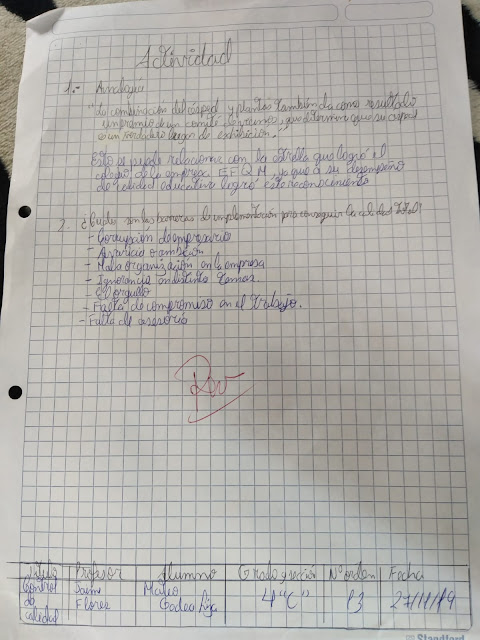 Actividad
1.- Analogía
"La combinación del césped y plantas también da como resultado
un premio de un comité de vecinos, que determine que su césped
es un verdadero lugar de exhibición."
Esto se puede relacionar con la estrella que logró el
colegio de la empresa EFQM, ya que a su desempeño
de calidad educativa logró este reconocimiento
2. ¿Cuáles son las barreras de implementación para conseguir la calidad
- Corrupción de empresario
- Avaricia o ambición
- Mala organización en la empresa
- Ignorancia en distintos temas
- El orgullo
- Falta de compromiso en el trabajo.
- Falta de asesoría
Profesor Alumno Grado y sección N° orden Fecha
Control de calidad Jaime Flores Mateo 4 "C" 13 27/11/19
Standford